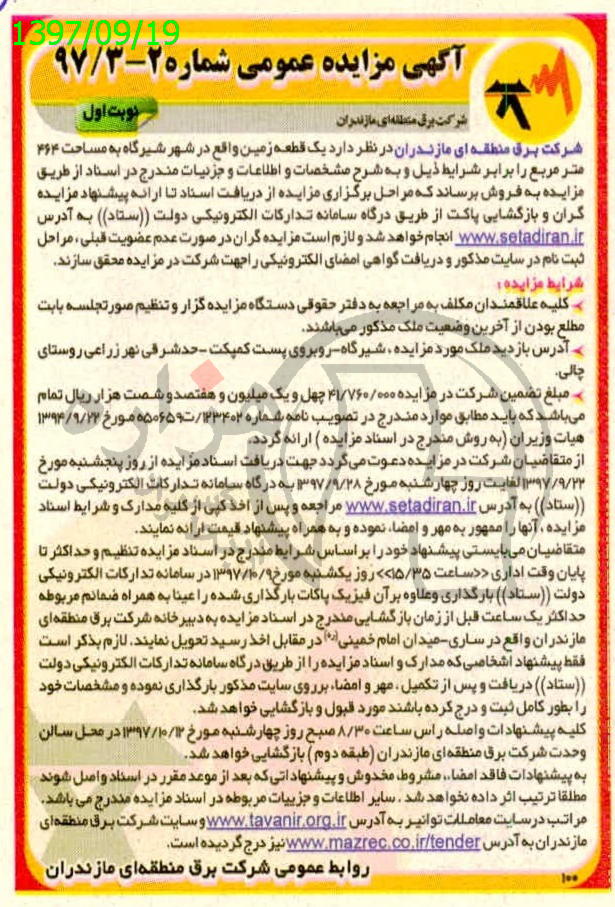 1397/09/19
آگهی مزایده عمومی شماره ۲-۹۷/۳
نوبت اول
شرکت برق منطقه‌ای مازندران
شرکت برق منطقه ای مازندران در نظر دارد یک قطعه زمین واقع در شهر شیرگاه به مساحت ۴۶۴
متر مربع را برابر شرایط ذیل و به شرح مشخصات و اطلاعات و جزئیات مندرج در اسناد از طریق
مزایده به فروش برساند که مراحل برگزاری مزایده از دریافت اسناد تا ارائه پیشنهاد مزایده
گران و بازگشایی پاکت از طریق درگاه سامانه تدارکات الکترونیکی دولت ((ستاد)) به آدرس
www.setadiran.ir انجام خواهد شد و لازم است مزایده گران در صورت عدم عضویت قبلی، مراحل
ثبت نام در سایت مذکور و دریافت گواهی امضای الکترونیکی را جهت شرکت در مزایده محقق سازند.
شرایط مزایده:
کلیه علاقمندان مکلف به مراجعه به دفتر حقوقی دستگاه مزایده گزار و تنظیم صورتجلسه بابت
مطلع بودن از آخرین وضعیت ملک مذکور می‌باشند.
آدرس بازدید ملک مورد مزایده، شیرگاه-روبروی پست کمپکت-حدشرقی نهر زراعی روستای
چالی.
مبلغ تضمین شرکت در مزایده ۴۱/۷۶۰/۰۰۰ چهل و یک میلیون و هفتصدو شصت هزار ریال تمام
می‌باشد که باید مطابق موارد مندرج در تصویب نامه شماره ۱۲۳۴۰۲/ت۵۰۶۵۹ه مورخ ۱۳۹۴/۹/۲۲
هیات وزیران (به روش مندرج در اسناد مزایده) ارائه گردد.
از متقاضیان شرکت در مزایده دعوت می‌گردد جهت دریافت اسناد مزایده از روز پنجشنبه مورخ
۱۳۹۷/۹/۲۲ لغایت روز چهارشنبه مورخ ۱۳۹۷/۹/۲۸ به درگاه سامانه تدارکات الکترونیکی دولت
((ستاد)) به آدرس www.setadiran.ir مراجعه و پس از اخذ کپی از کلیه مدارک و شرایط اسناد
مزایده، آنها را ممهور به مهر و امضاء نموده و به همراه پیشنهاد قیمت ارائه نمایند.
متقاضیان می‌بایستی پیشنهاد خود را بر اساس شرایط مندرج در اسناد مزایده تنظیم و حداکثر تا
پایان وقت اداری <<ساعت ۱۵/۳۵>> روز یکشنبه مورخ ۱۳۹۷/۱۰/۹ در سامانه تدارکات الکترونیکی
دولت ((ستاد)) بارگذاری وعلاوه بر آن فیزیک پاکات بارگذاری شده را عینا به همراه ضمائم مربوطه
حداکثر یک ساعت قبل از زمان بازگشایی مندرج در اسناد مزایده به دبیرخانه شرکت برق منطقه‌ای
مازندران واقع در ساری-میدان امام خمینی(ره) در مقابل اخذ رسید تحویل نمایند. لازم بذکر است
فقط پیشنهاد اشخاصی که مدارک و اسناد مزایده را از طریق درگاه سامانه تدارکات الکترونیکی دولت
((ستاد)) دریافت و پس از تکمیل، مهر و امضاء بر روی سایت مذکور بارگذاری نموده و مشخصات خود
را بطور کامل ثبت و درج کرده باشند مورد قبول و بازگشایی خواهد شد.
کلیه پیشنهادات واصله راس ساعت ۸/۳۰ صبح روز چهارشنبه مورخ ۱۳۹۷/۱۰/۱۲ در محل سالن
وحدت شرکت برق منطقه‌ای مازندران (طبقه دوم) بازگشایی خواهد شد.
به پیشنهادات فاقد امضاء، مشروط، مخدوش و پیشنهاداتی که بعد از موعد مقرر در اسناد واصل شوند
مطلقا ترتیب اثر داده نخواهد شد. سایر اطلاعات و جزییات مربوطه در اسناد مزایده مندرج می باشد.
مراتب در سایت معاملات توانیر به آدرس www.tavanir.org.ir و سایت شرکت برق منطقه‌ای
مازندران به آدرس www.mazrec.co.ir/tender نیز درج گردیده است.
روابط عمومی شرکت برق منطقه‌ای مازندران
۱۰۰